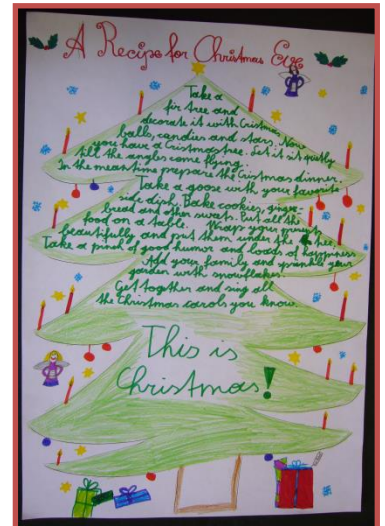 A Recipe for Christmas Eve
Take a
fir tree and
decorate it with Cristmas
balls, candies and stars. Now
you have a Cristmas tree. Let it sit quietly
till the angles come flying.
In the meantime prepare the Cristmas dinner.
Take a goose with your favorite
side dish. Bake cookies, ginger-
bread and other sweets. Put all the
food on a table. Wraps your presents
beautifully and put them under the tree.
Take a pinch of good humor and loads of happiness
Add your family and sprinkle your
garden with snowflakes.
Get together and sing all
the Christmas carols you know.
This is
Christmas!